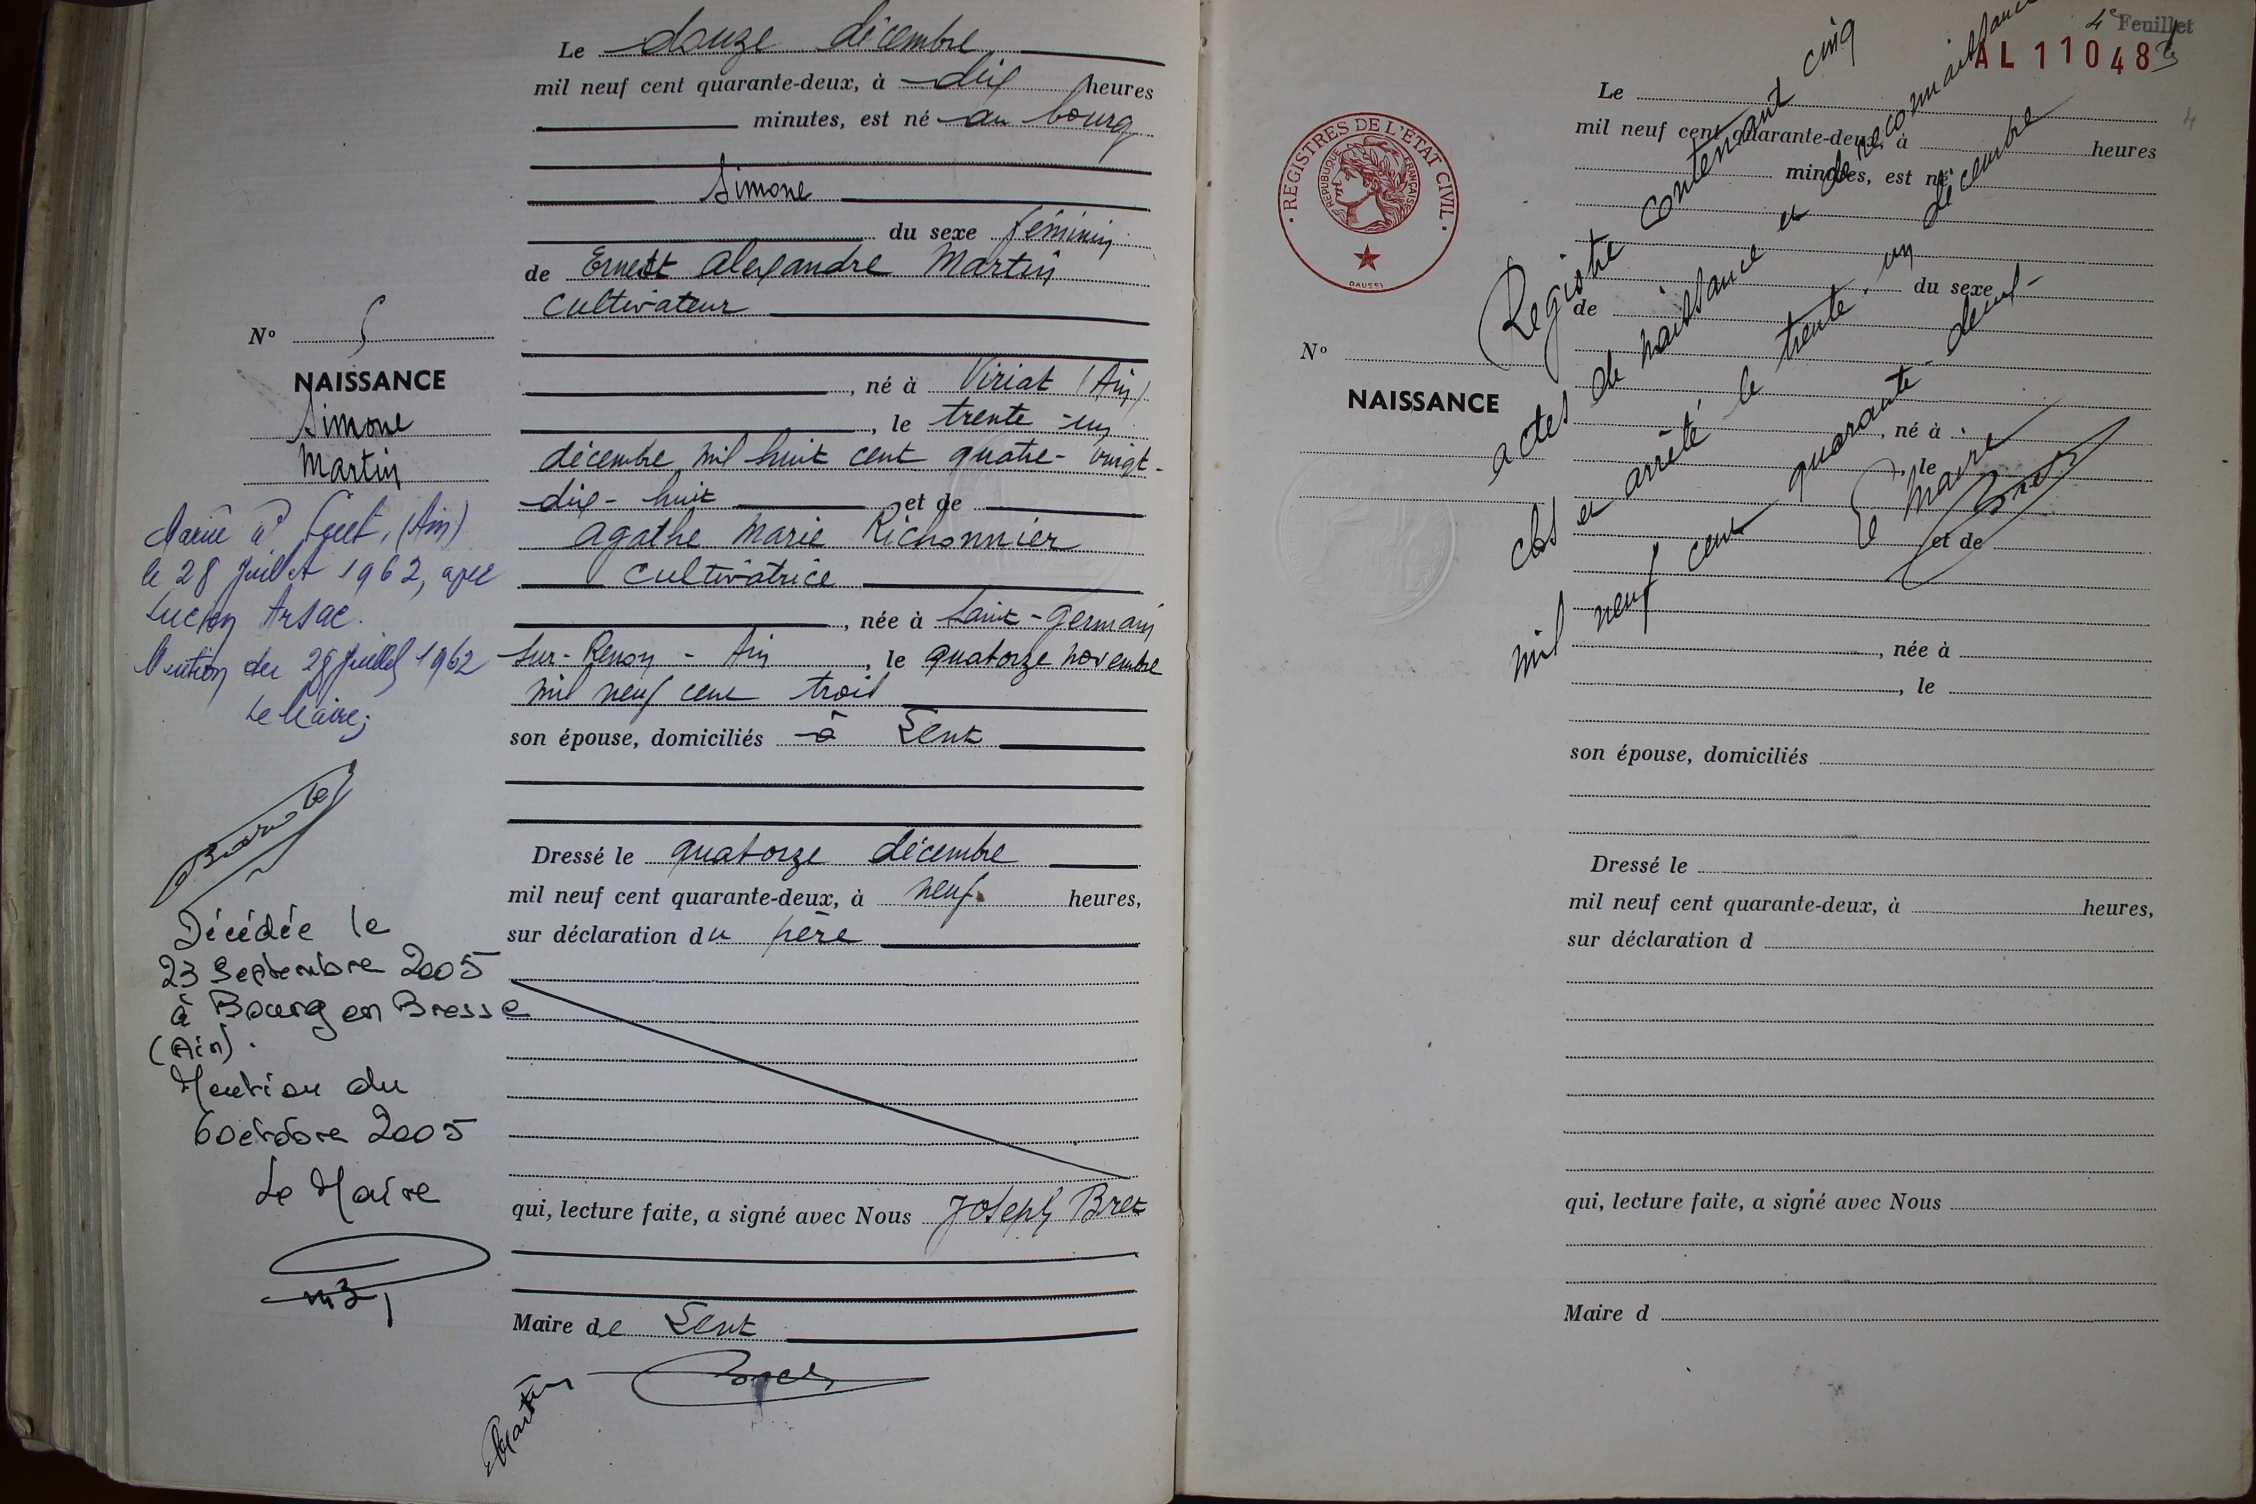 Le douze décembre
mil neuf cent quarante-deux, à dix heures
minutes, est né au bourg
Simone
du sexe féminin
de Ernest Alexandre Martin
cultivateur
, né à Viriat (Ain)
, le trente-un
décembre mil huit cent quatre-vingt-
dix-huit et de
Agathe Marie Richonnier
cultivatrice
, née à Saint-Germain
sur-Renon - Ain, le quatorze novembre
mil neuf cent trois
son épouse, domiciliés à Lent
Dressé le quatorze décembre
mil neuf cent quarante-deux, à neuf heures,
sur déclaration du père
qui, lecture faite, a signé avec Nous Joseph Bret
Maire de Lent
Martin
Bret
N° 5
NAISSANCE
Simone
Martin
le 28 Juillet 1962, avec
Lucien Arsac.
Mention du 28 Juillet 1962
Le Maire;
Décédée le
23 Septembre 2005
à Bourg en Bresse
(Ain).
Mention du
6 octobre 2005
Le Maire
4e Feuillet
AL 11048
4
REGISTRES DE L'ÉTAT CIVIL
RÉPUBLIQUE FRANÇAISE
DAUSSI
Registre contenant cinq
actes de naissance et de reconnaissance
clos et arrêté le trente-un décembre
mil neuf cent quarante-deux-
Le Maire
Bret
N°
NAISSANCE
Le
mil neuf cent quarante-deux, à heures
minutes, est né
du sexe
de
, né à
, le
et de
, née à
, le
son épouse, domiciliés
Dressé le
mil neuf cent quarante-deux, à heures,
sur déclaration d
qui, lecture faite, a signé avec Nous
Maire d